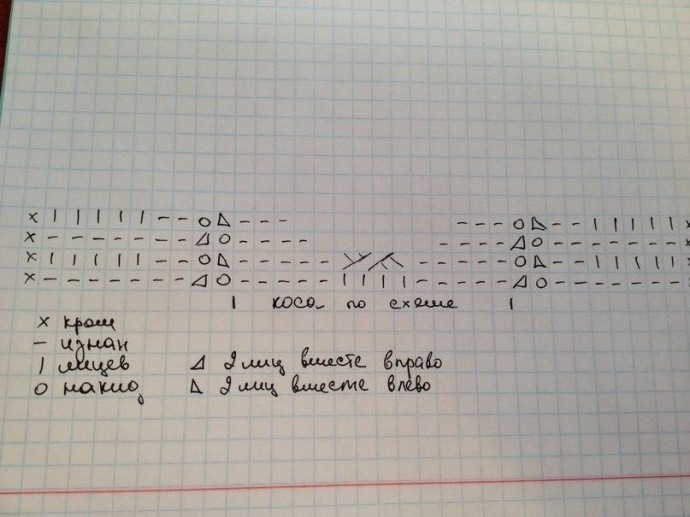 x | | | | | - - o ⊿ - - - - - - o ⊿ - - | | | | | x
x - - - - - - - ⊿ o - - - - - - - - ⊿ o - - - - - - - x
x | | | | | - - o ⊿ - - - - - - - - - - o ⊿ - - | | | | | x
x - - - - - - - ⊿ o - - - - - - | | | | - - - - - ⊿ o - - - - - - - x
| коса по схеме |
x кром
- изнан
| лицев ⊿ 2 лиц вместе вправо
o накид ⊿ 2 лиц вместе влево